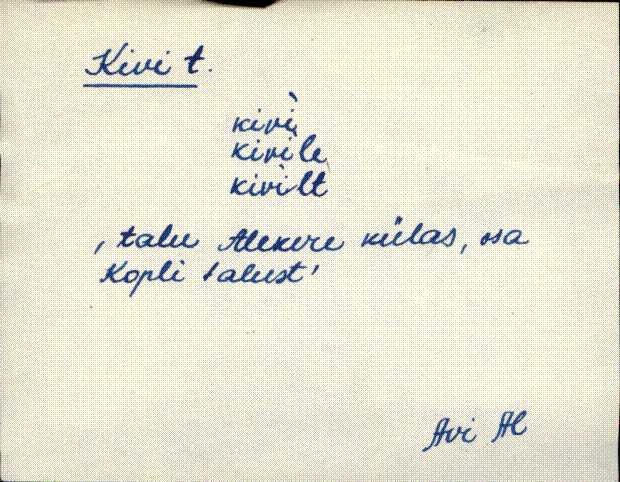 Kivi t.
kivì̬
kivi̬le
kivi̬lt
, talu Alekere külas, osa
Kopli talust'
Avi Al